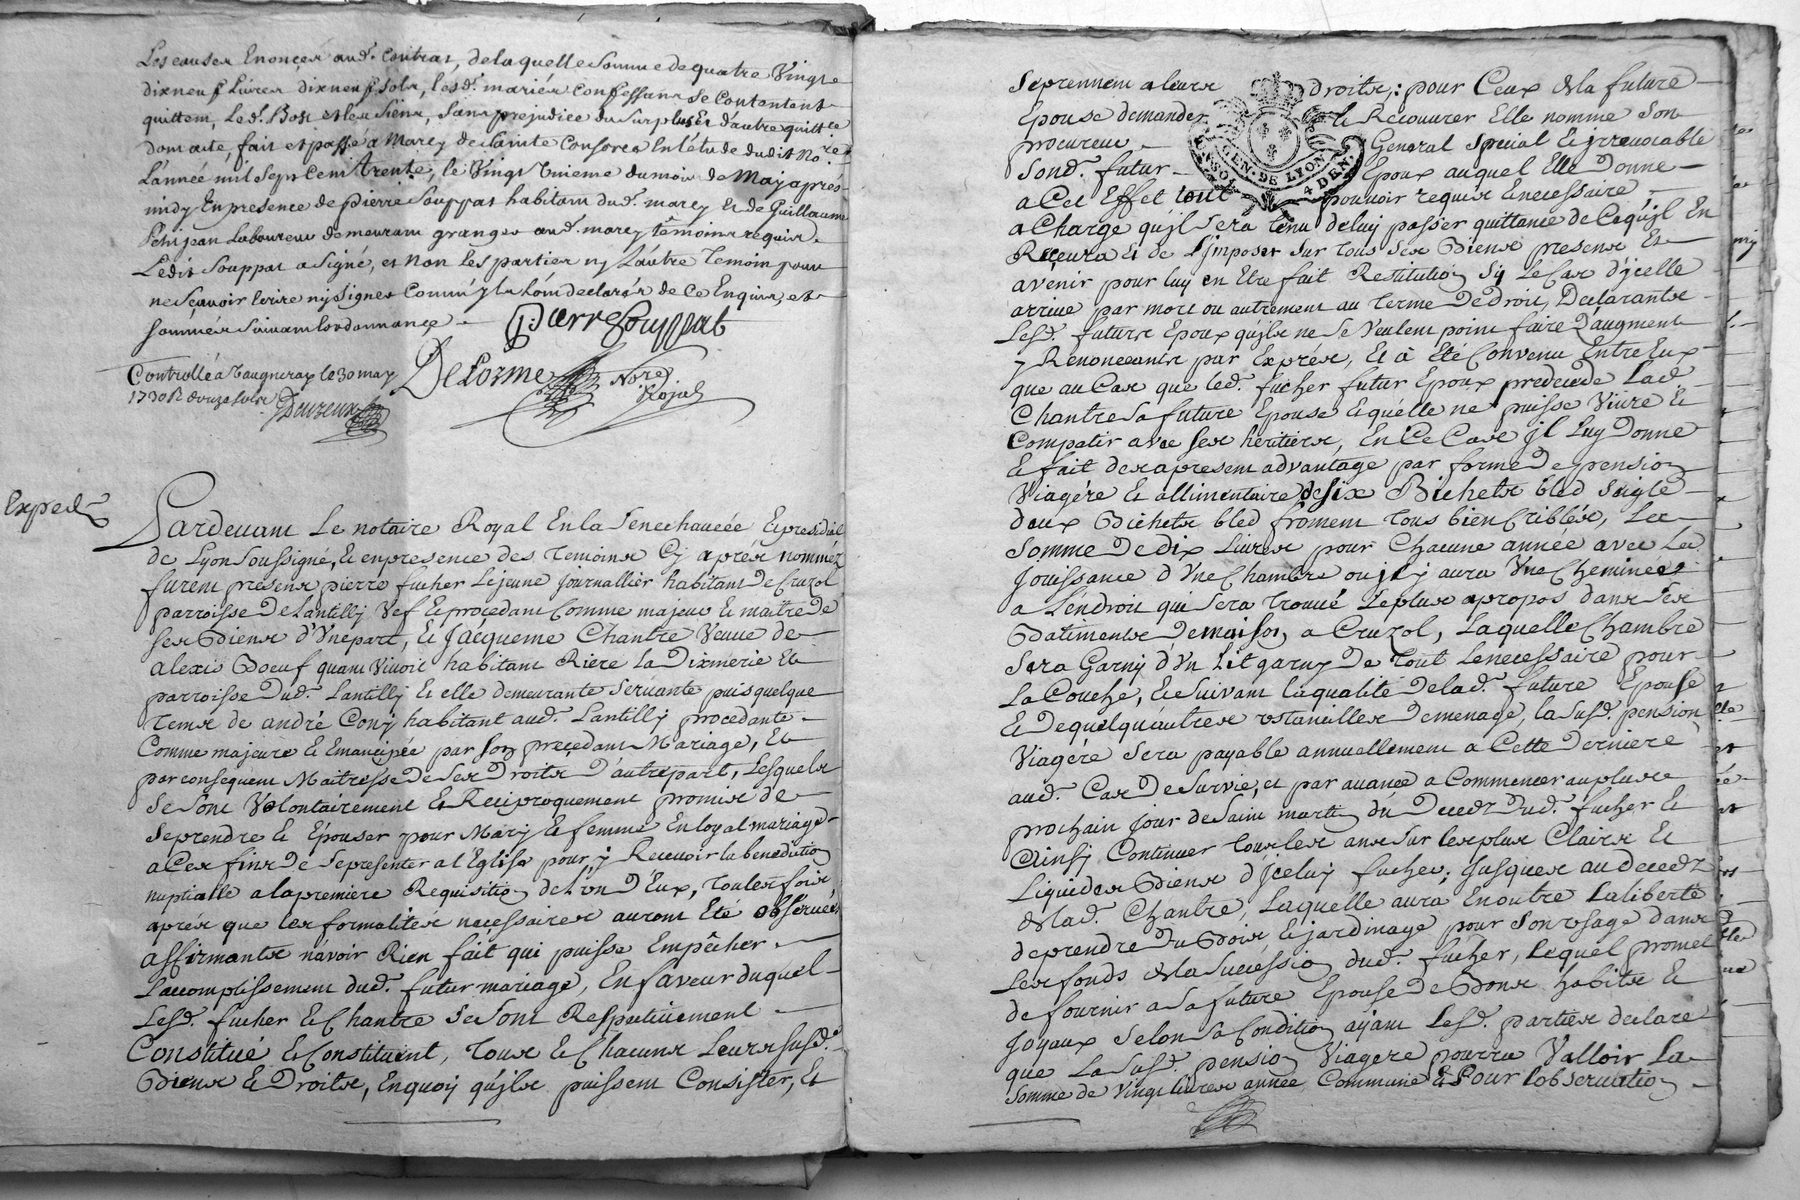 Les causes Enoncés aud. contrat, de laquelle Somme de quatre Vingt
dixneuf Livres dixneuf sols, lesd. mariés confessans se contentent
quittent, Led. Bost et les siens, sans prejudice du surplus Et d'autre quitt.ce
dont acte, fait et passé à Marcy de Sainte Consorce En l'étude dudit No.re
L'année mil sept cent trente, le Vingt du mois de May après
midy En presence de pierre Souppat habitant dud. marcy et de Guillaume
Petitjean Laboureur demeurant granger aud. marcy témoins requis.
Ledit Souppat a signé, et non les parties ny L'autre Temoin pour
ne sçavoir écrire ny signer comm'ils L'ont declarés de ce Enquis et
sommés suivant l'ordonnance.
Pierre Souppat
Delorme No.re Royal
Controllé à Vaugneray le 30 may
1730 R douze sols
Expedié
Pardevant Le notaire Royal En la Senechaucée Et presidial
de Lyon Soussigné, & en presence des Temoins Cy après nommez
furent presens pierre fucher Lejeune Journallier habitant de Cruzol
parroisse De Lantilly Vef & procedant Comme majeur & maitre de
ses Biens d'Une part, & Jacqueme Chantre Veuve de
alexis Boeuf quant Vivoit habitant Riere La Dixmerie Et
parroisse Dud. Lantilly & elle demeurante Servante puis quelque
Tems de andré Cony habitant aud. Lantilly procedante
Comme majeure & Emancipée par son preçedant Mariage, Et
par consequent Maitresse De Ses Droits D'autre part, Lesquels
Se Sont Volontairement & Reciproquement promis de
Se prendre & Epouser pour Mary & femme En loyal mariage
a Ces fins de Se presenter a l'Eglise pour y Recevoir la benediction
nuptialle a la premiere Requisition de l'un D'Eux, Toutesfois
aprés que les formalités necessaires auront Eté observées
affirmants n'avoir Rien fait qui puisse Empêcher
L'accomplissement dud. futur mariage, En faveur duquel
Lesd. fucher & Chantre Se Sont Respectivement
Constitué & Constituent, Tous & Chacuns Leurs susd.
Biens & Droits, En quoy qu'jls puissent Consister, Et
Se prennent a leurs droits; pour Ceux de la future
Epouse demander & Recouvrer Elle nomme Son
procureur General Special & jrrevocable
Sond. futur Epoux auquel Elle Donne
a Cet Effet tout pouvoir requis & necessaire
GEN. DE LYON 4 DEN.
a Charge qu'jl Sera tenu de luy passer quittance de Ce qu'jl En
Reçevra & de L'jmposer Sur Tous Ses Biens presens Et
avenir pour luy en Etre fait Restitution Sy Le Cas d'jcelle
arrive par mort ou autrement au Terme De Droit, Declarants
Lesd. futurs Epoux qu'jls ne Se Veulent point faire D'augment
y Renonceants par Exprés, Et à Eté Convenu Entre Eux
que au Cas que led. fucher futur Epoux predecede Lad.
Chantre Sa future Epouse & qu'elle ne puisse Vivre &
Compatir avec Ses heritiers, En Ce Cas jl Luy Donne
& fait des a present advantage par forme De pension
Viagére & allimentaire de Six Bichets bled Seigle
deux Bichets bled froment Tous bien Criblés, La
Somme De Dix Livres pour Chacune année avec La
Jouissance d'Une Chambre ou jl y aura Une Cheminée
a L'endroit qui Sera Trouvé Le plus apropos dans Ses
Batiments De maison, a Cruzol, Laquelle Chambre
Sera Garny d'Un Lit garny De Tout Le necessaire pour
La Couche, & Suivant la qualité De lad. future Epouse
& De quelqu'autres ustancilles De menage, la Susd. pension
Viagére Sera payable annuellement a Cette Derniere
aud. Cas De Survie, et par avance a Commencer au plus
prochain jour de Saint martin du Decedz Dud. fucher &
Ainsy Continuer tous les ans Sur les plus Clairs Et
Liquides Biens d'jceluy fucher, Jusques au decedz
de lad. Chantre, Laquelle aura En outre La liberté
de prendre du Bois & jardinage pour Son usage dans
Les fonds de la Succession dud. fucher, Lequel promet
de fournir a Sa future Epouse de Bons habits &
Joyaux Selon Sa Condition ayant Lesd. parties declaré
que La Susd. pension Viagere pourra Valloir La
Somme de Vingt livres année Commune & Pour l'observation